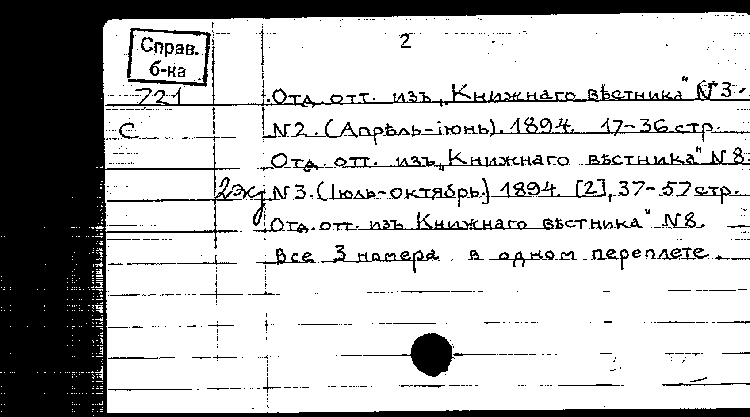 2
Справ.
б-ка
721
С
Отд. отт. изъ „Книжнаго вѣстника" N 3.
N 2. (Апрѣль-iюнь). 1894. 17-36 стр.
Отд. отт. изъ „Книжнаго вѣстника" N 8
2экз N 3. (Iюль-октябрь) 1894. [2], 37-57 стр.
Отд. отт. изъ Книжнаго вѣстника" N 8.
Все 3 номера в одном переплете.